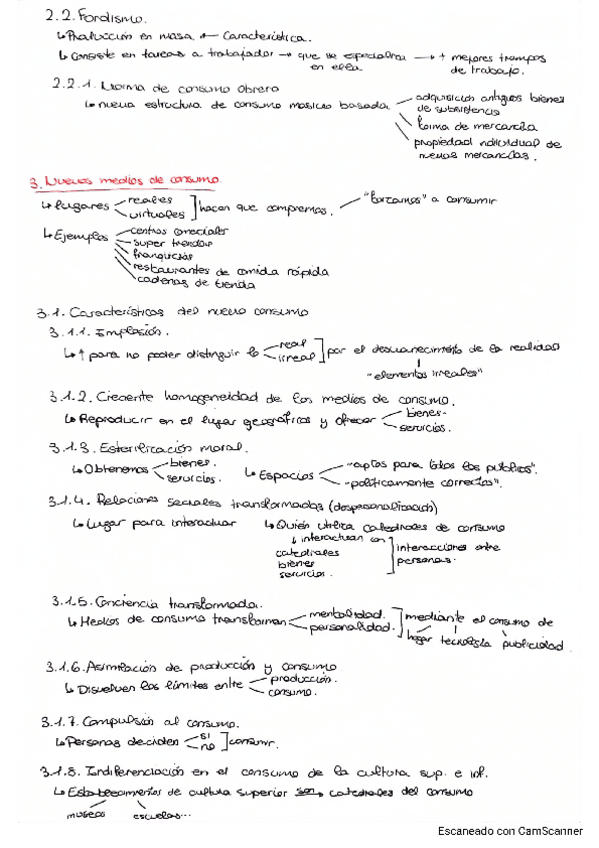 2.2. Fordismo.
↳ Producción en masa ← Característica.
↳ Consiste en tareas a trabajador → que se especializa en ella → + mejores tiempos de trabajo.
2.2.1. Norma de consumo obrero
↳ nueva estructura de consumo masivo basada
adquisición antiguos bienes de subsistencia
forma de mercancía
propiedad individual de nuevas mercancías.
3. Nuevos medios de consumo.
↳ Lugares
reales
virtuales
] hacen que compremos. — "forzarnos" a consumir
↳ Ejemplos
centros comerciales
super tiendas
franquicias
restaurantes de comida rápida
cadenas de tienda
3.1. Características del nuevo consumo
3.1.1. Implosión.
↳ ↑ para no poder distinguir lo
real
irreal
] por el desvanecimiento de la realidad
↓
"elementos irreales"
3.1.2. Creciente homogeneidad de los medios de consumo.
↳ Reproducir en el lugar geográficos y ofrecer
bienes.
servicios.
3.1.3. Esterilización moral.
↳ Obtenemos
bienes.
servicios.
↳ Espacios
"aptos para todos los públicos".
"políticamente correctos".
3.1.4. Relaciones sociales transformadas (despersonalización)
↳ Lugar para interactuar
↳ Quién utiliza catedrales de consumo
↓ interactúan con
catedrales
bienes
servicios.
] interacciones entre personas.
3.1.5. Conciencia transformada.
↳ Medios de consumo transforman
mentalidad.
personalidad.
] mediante el consumo de
hogar tecnología publicidad
3.1.6. Asimilación de producción y consumo
↳ Disuelven los límites entre
producción.
consumo.
3.1.7. Compulsión al consumo.
↳ Personas deciden
si
no
] consumir.
3.1.8. Indiferenciación en el consumo de la cultura sup. e inf.
↳ Establecimientos de cultura superior son → catedrales del consumo
museos escuelas...
Escaneado con CamScanner